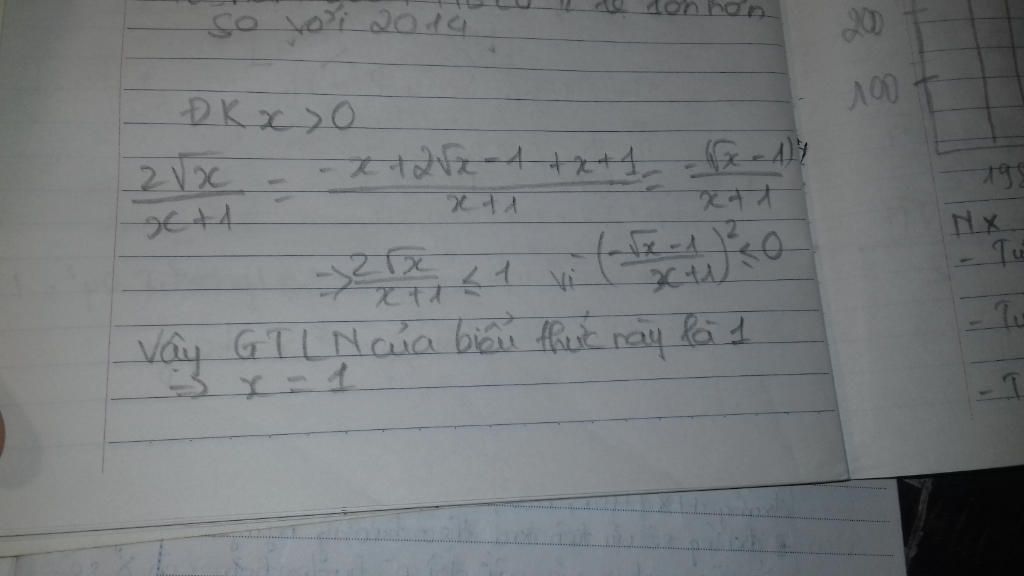 so với 2014
ĐK x > 0
2√x / x+1 = -x+2√x-1+x+1 / x+1 = -(√x-1) / x+1
⇒ 2√x / x+1 ≤ 1 vì (-√x-1 / x+1)² ≤ 0
Vậy GTLN của biểu thức này là 1
⇒ x = 1
200
100
198
NX
- Tu
- Tu
- T